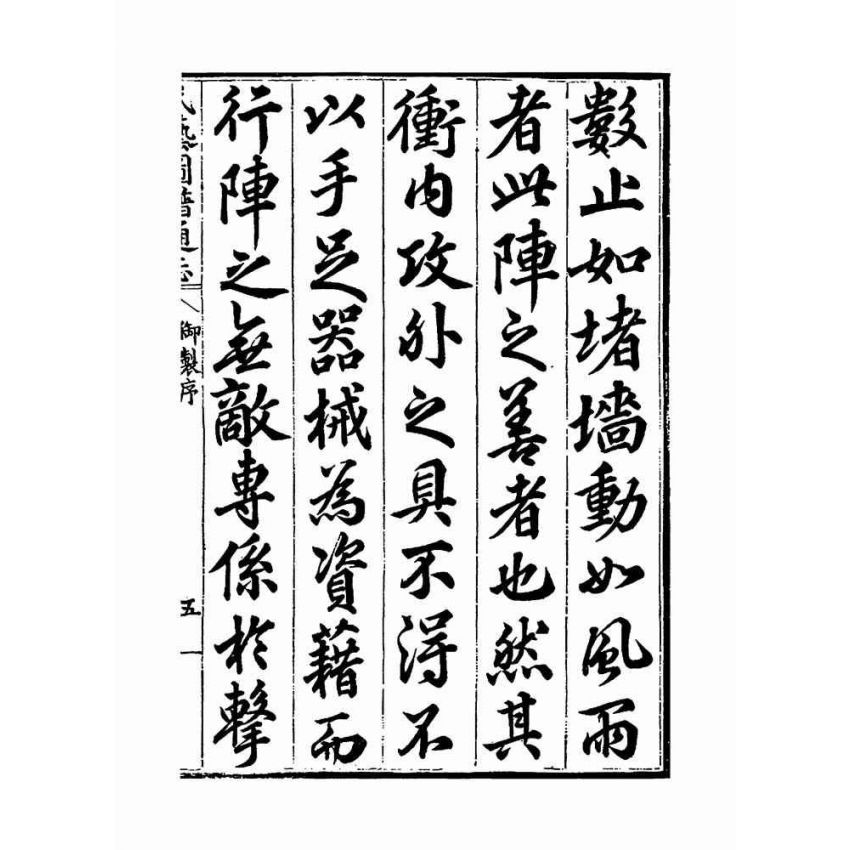 數止如堵墻動如風雨
者此陣之善者也然其
衝內攻外之具不得不
以手足器械為資藉而
行陣之無敵專係於擊
武藝圖譜通志
御製序
五
一